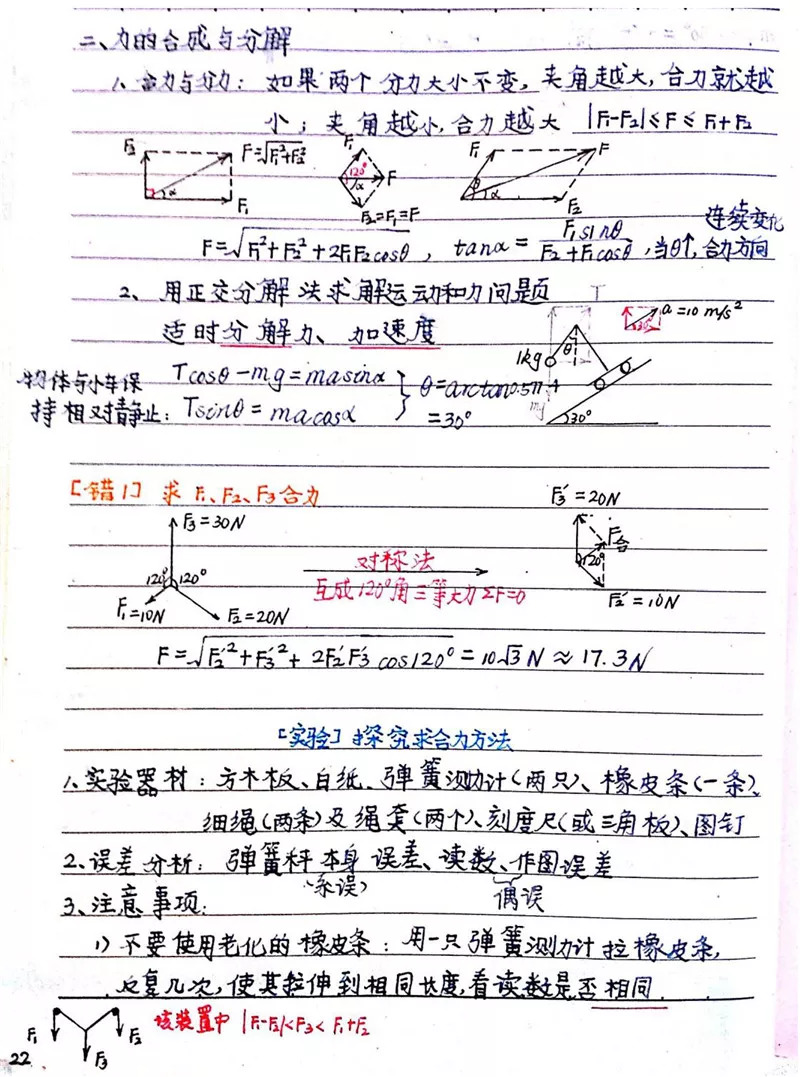 二、力的合成与分解
1、合力与分力：如果两个分力大小不变，夹角越大，合力就越
小；夹角越小，合力越大 |F₁-F₂|≤F≤F₁+F₂
F₂ F=√(F₁²+F₂²) α F₁
F₁ 120° α F F₂=F₁=F
F₁ θ α F F₂
F=√(F₁²+F₂²+2F₁F₂cosθ)，tanα=F₁sinθ/(F₂+F₁cosθ)，当θ↑，合力方向
连续变化
2、用正交分解法求解运动和力问题
适时分解力、加速度
T θ 1kg mg 30°
a=10m/s² 30°
物体与小车保
持相对静止：
Tcosθ-mg=masinα
Tsinθ=macosα
θ=arctan0.5
=30°
[错1] 求F₁、F₂、F₃合力
F₃=30N
120° 120°
F₁=10N F₂=20N
对称法
互成120°角三等大力ΣF=0
F₃′=20N
F合
120°
F₂′=10N
F=√(F₂′²+F₃′²+2F₂′F₃′cos120°)=10√3N≈17.3N
[实验]探究求合力方法
1、实验器材：方木板、白纸、弹簧测力计(两只)、橡皮条(一条)、
细绳(两条)及绳套(两个)、刻度尺(或三角板)、图钉
2、误差分析：弹簧秤本身误差、读数、作图误差
(系误) 偶误
3、注意事项：
1)不要使用老化的橡皮条：用一只弹簧测力计拉橡皮条，
反复几次，使其拉伸到相同长度，看读数是否相同.
F₁ F₂ F₃
该装置中 |F₁-F₂|<F₃<F₁+F₂
22